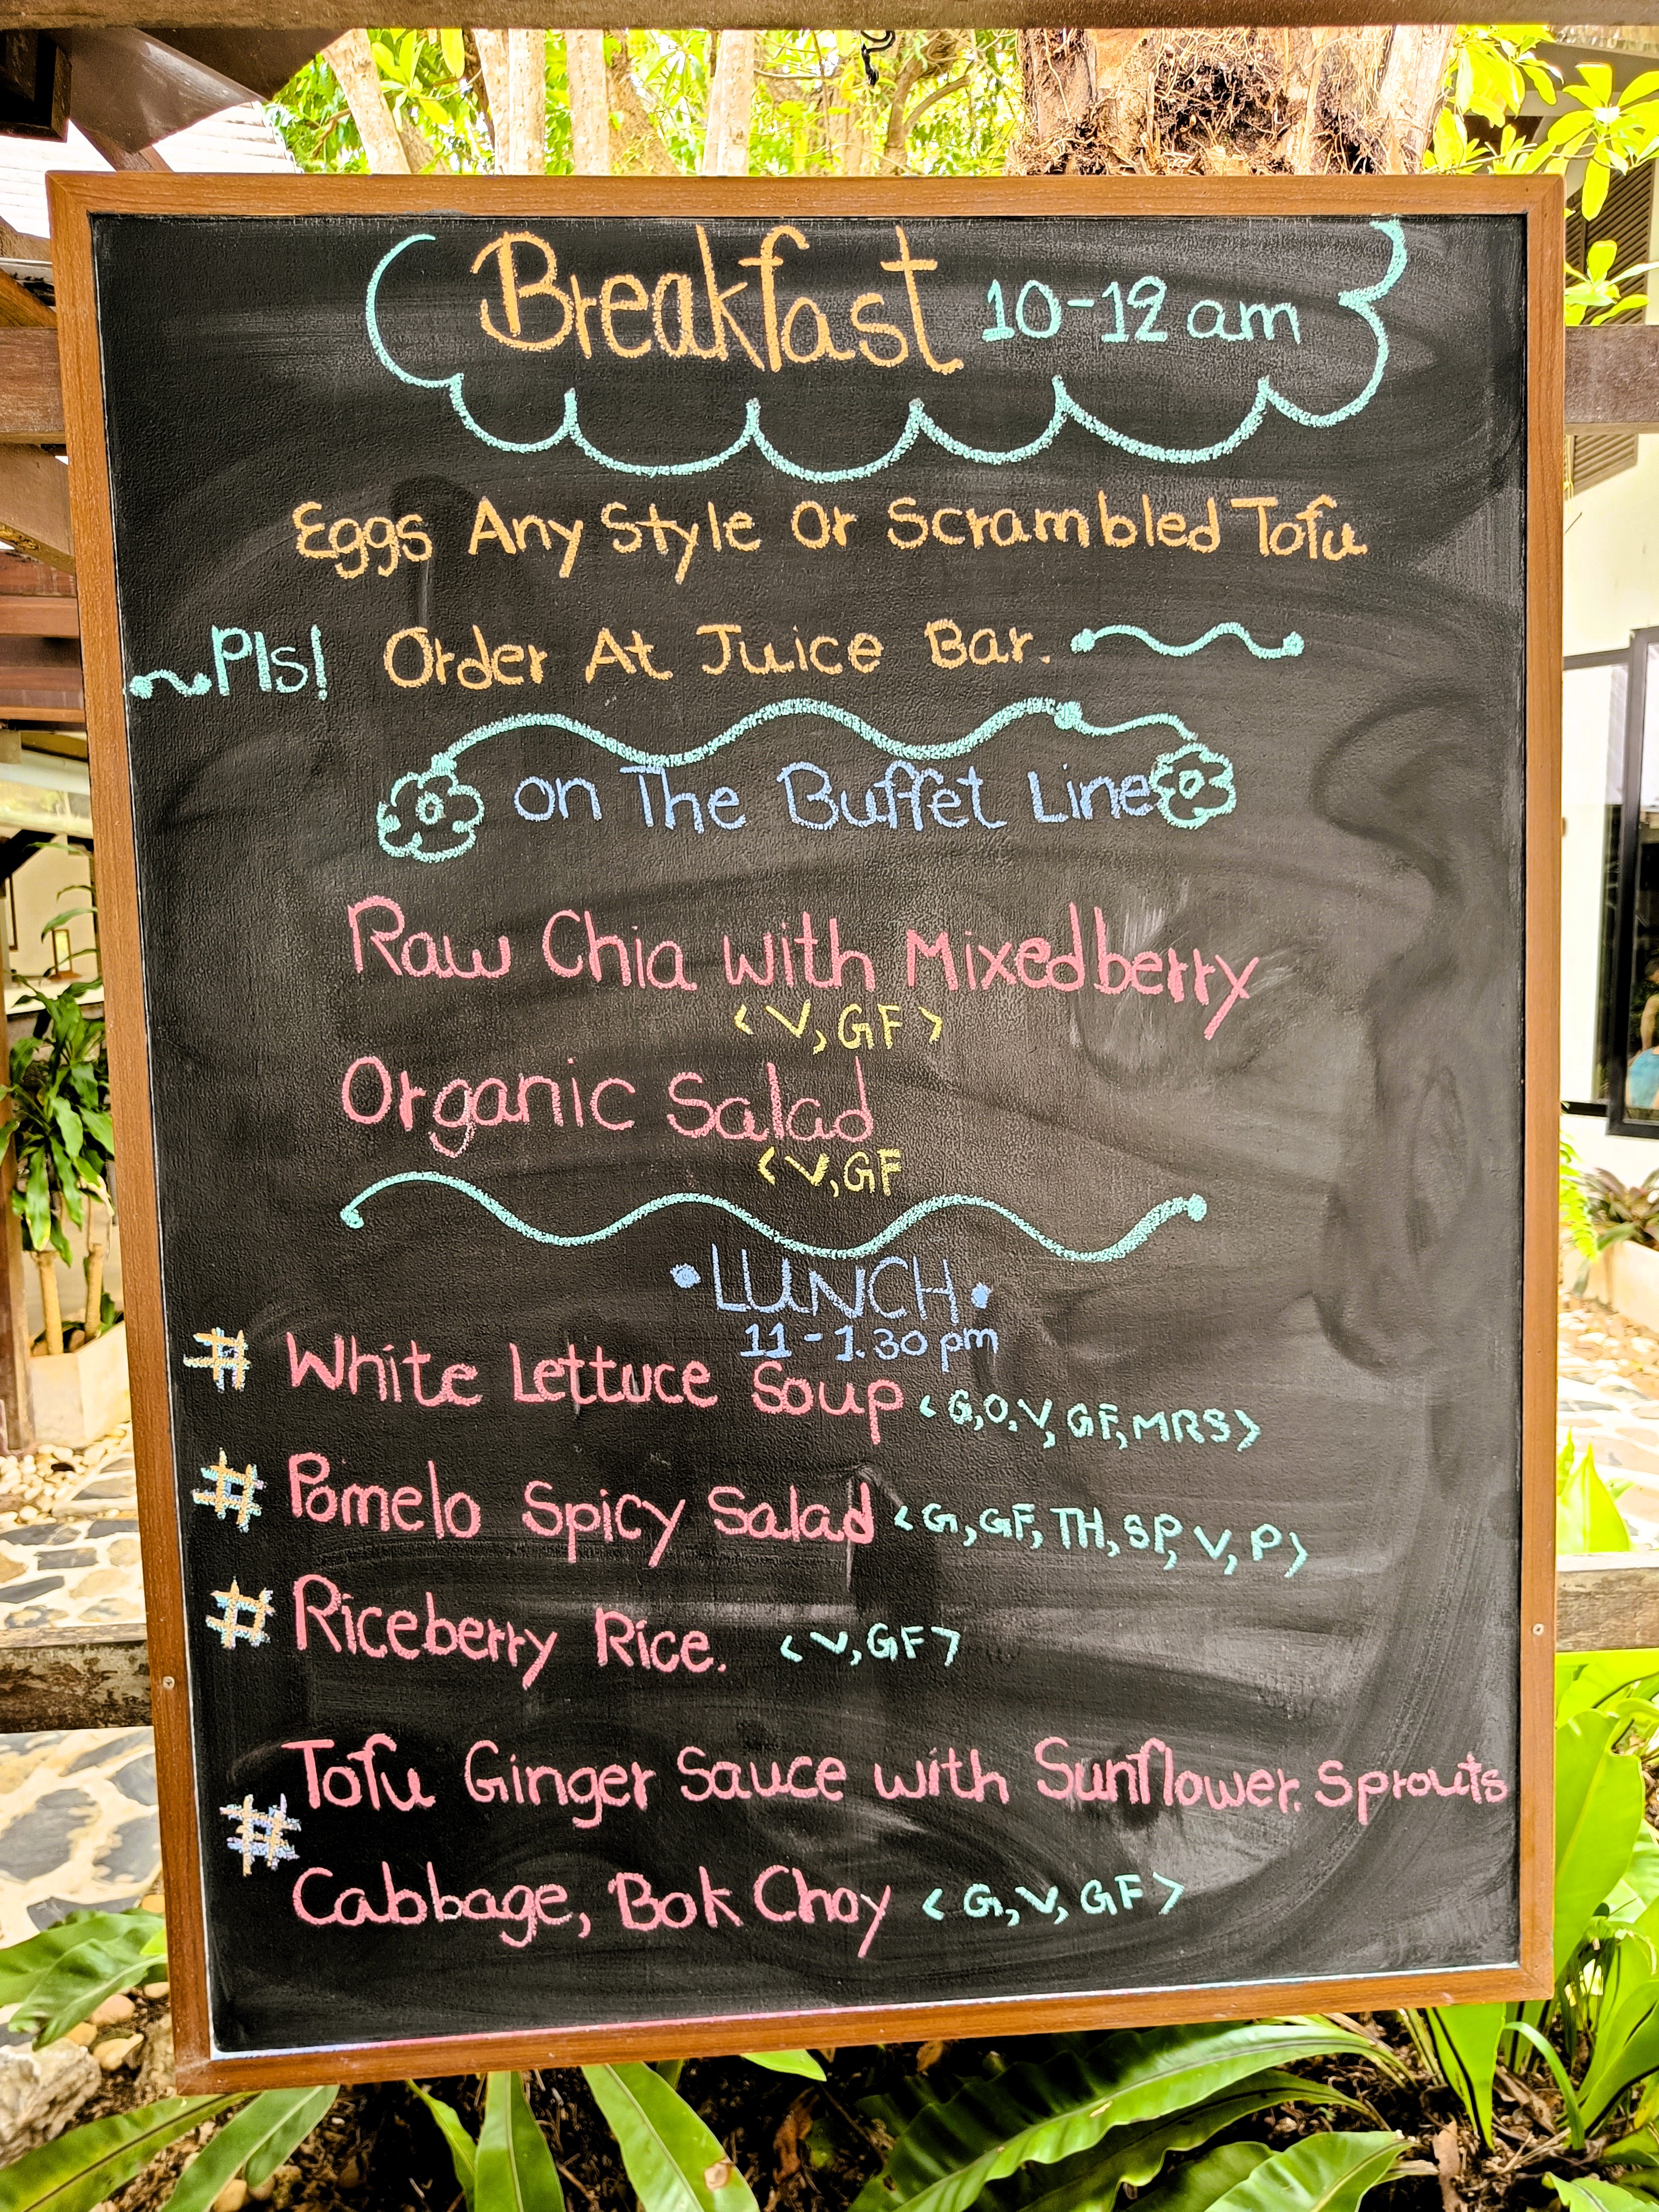 Breakfast 10-12 am
Eggs Any Style Or Scrambled Tofu
Pls! Order At Juice Bar.
on The Buffet Line
Raw Chia with Mixedberry
<V, GF>
Organic Salad
<V, GF
•LUNCH•
11-1.30 pm
# White Lettuce Soup <G,O,V,GF,MRS>
# Pomelo Spicy Salad <G,GF,TH,SP,V,P>
# Riceberry Rice. <V,GF>
Tofu Ginger Sauce with Sunflower. Sprouts
# Cabbage, Bok Choy <G,V,GF>